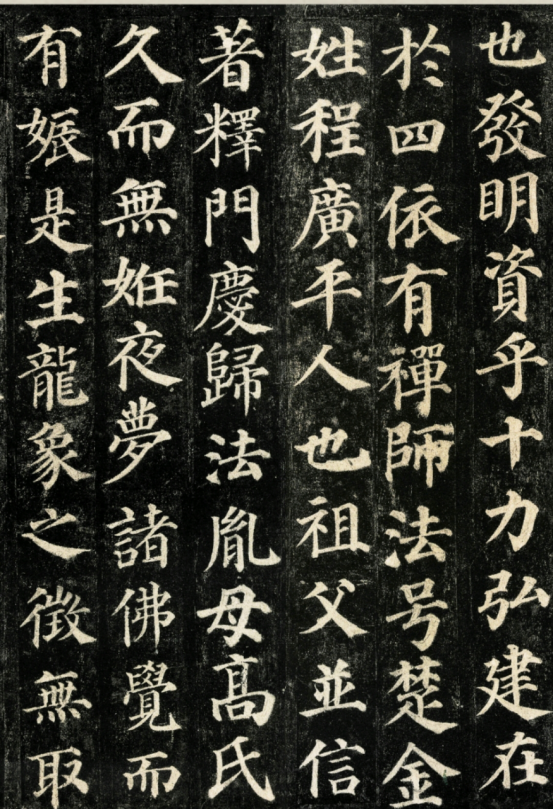 也發明資乎十力弘建在
於四依有禪師法号楚金
姓程廣平人也祖父並信
著釋門慶歸法胤母高氏
久而無姙夜夢諸佛覺而
有娠是生龍象之徵無取